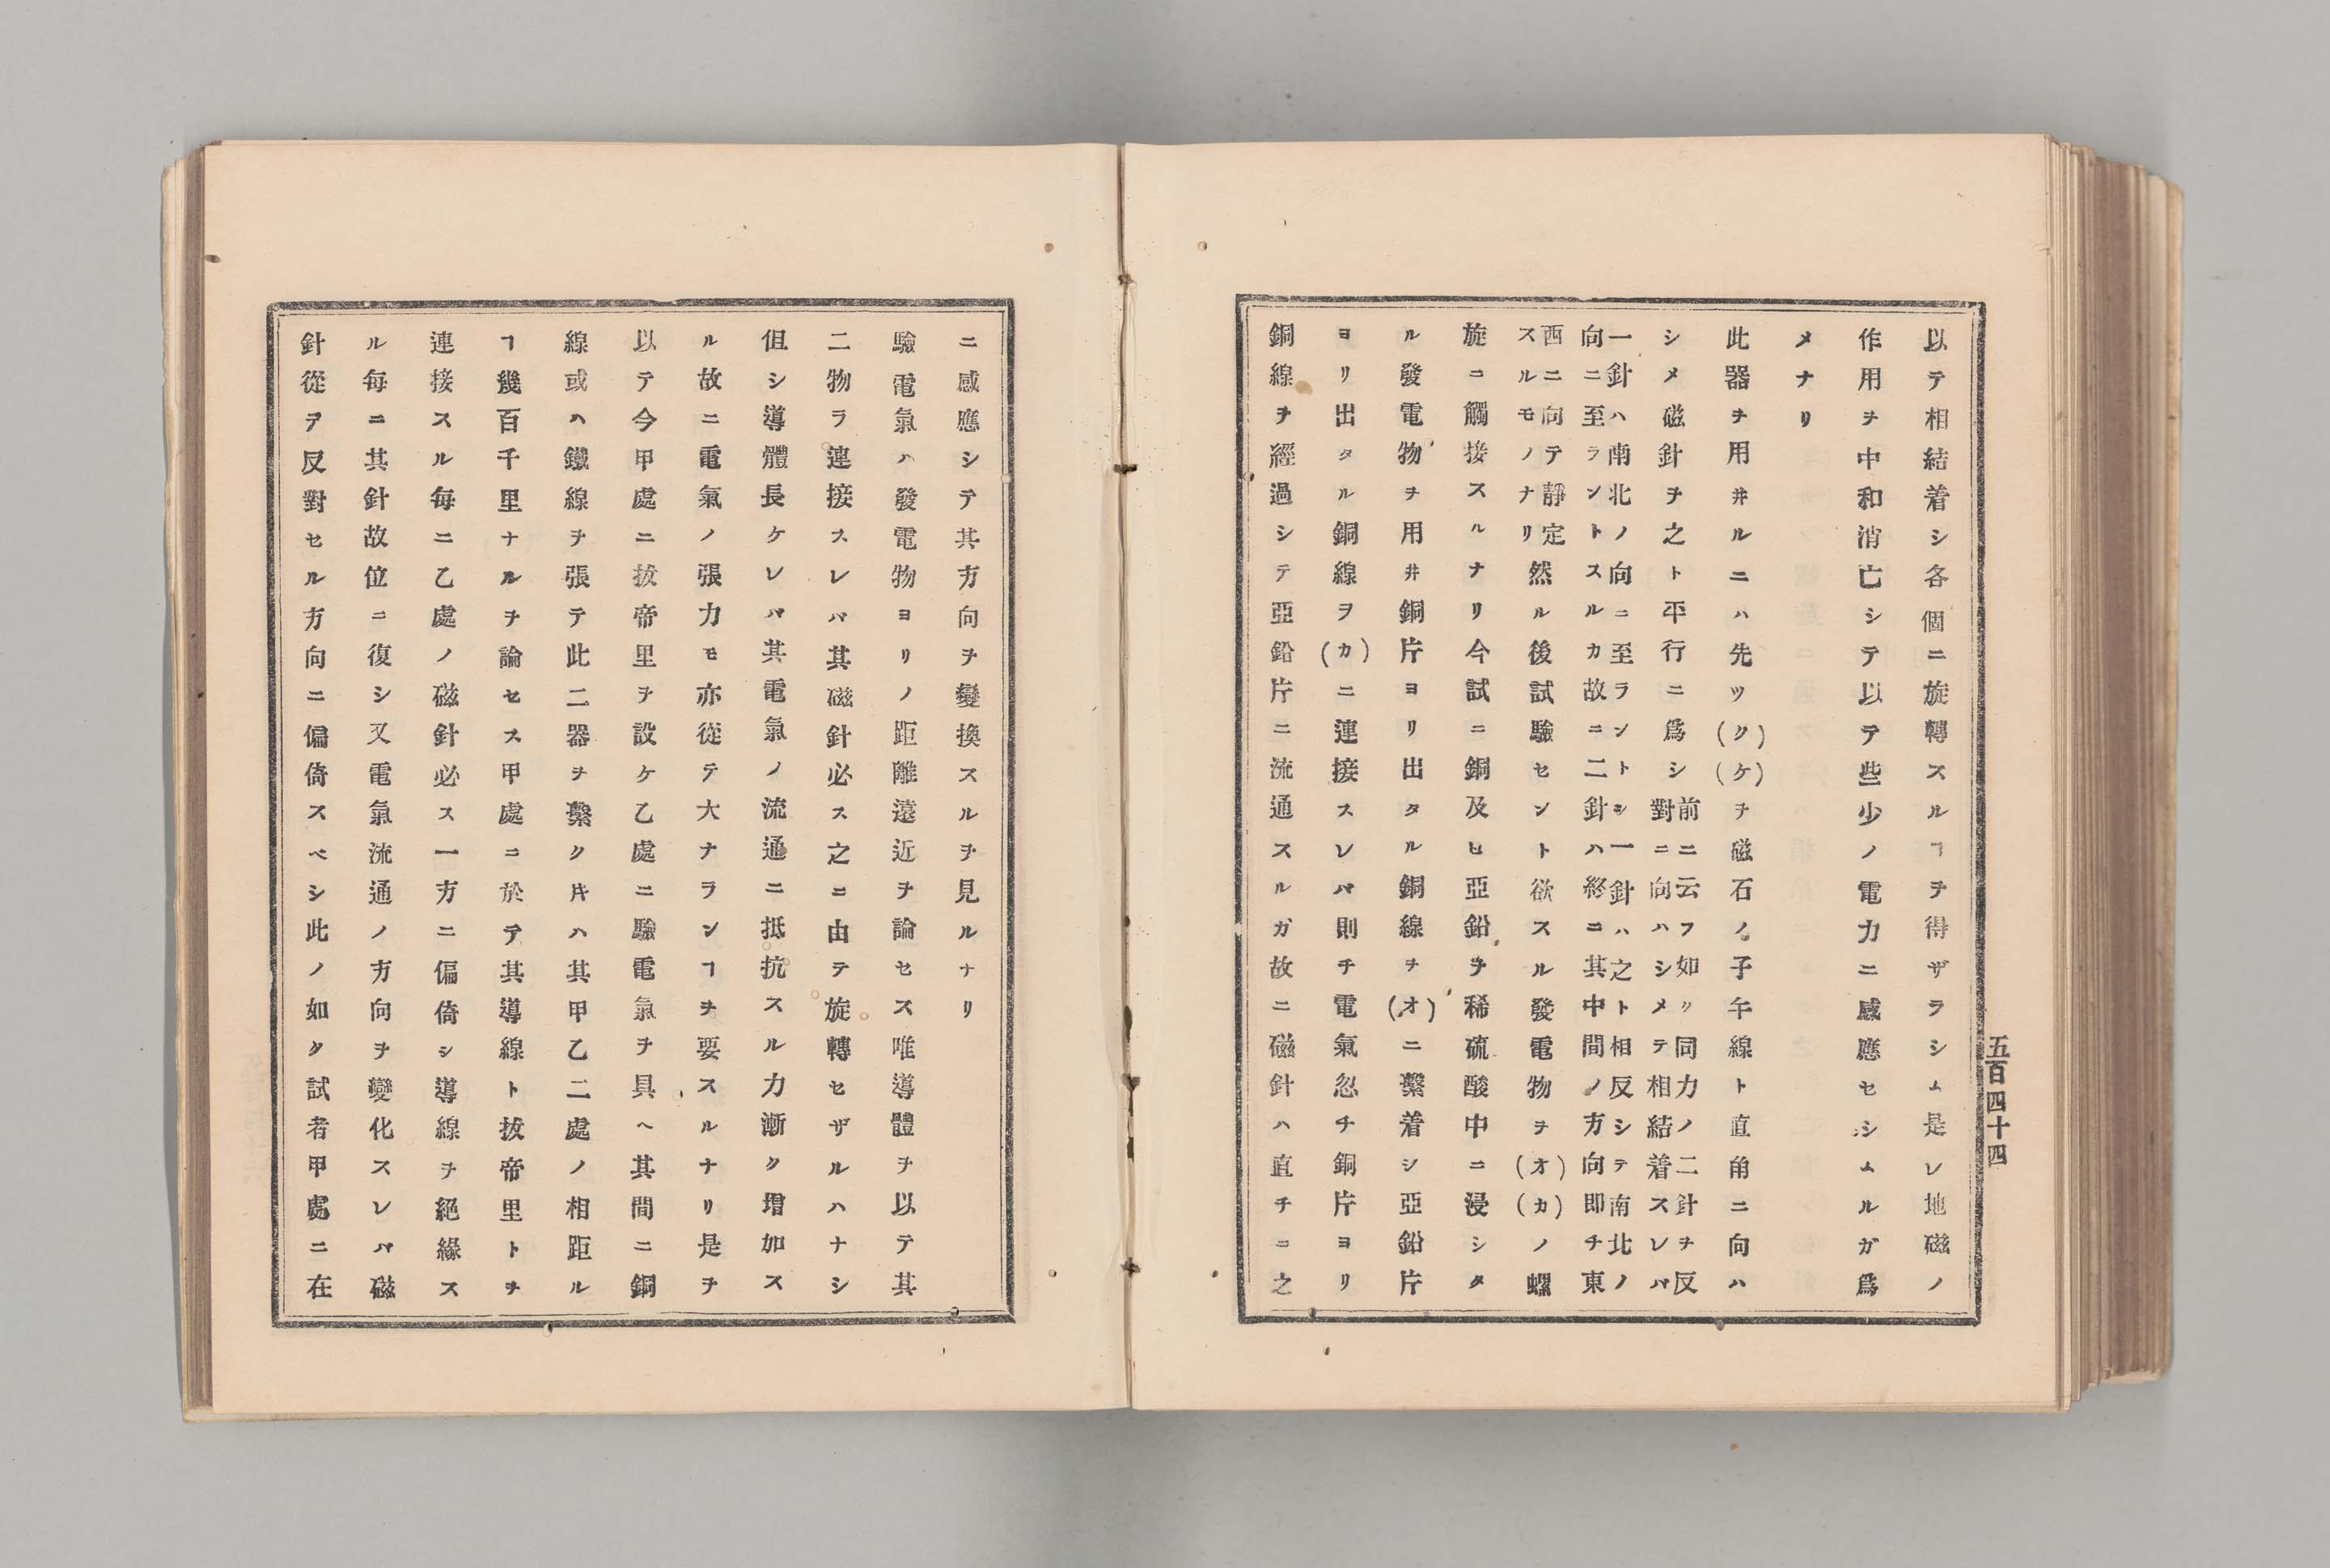 五百四十四
以テ相結着シ各個ニ旋轉スルヿヲ得ザラシム是レ地磁ノ
作用ヲ中和消亡シテ以テ些少ノ電力ニ感應セシムルガ爲
メナリ
此器ヲ用井ルニハ先ツ(ク)(ケ)ヲ磁石ノ子午線ト直角ニ向ハ
シメ磁針ヲ之ト平行ニ爲シ
前ニ云フ如ク同力ノ二針ヲ反
對ニ向ハシメテ相結着スレバ
一針ハ南北ノ向ニ至ラントシ一針ハ之ト相反シテ南北ノ
向ニ至ラントスルカ故ニ二針ハ終ニ其中間ノ方向即チ東
西ニ向テ靜定
スルモノナリ
然ル後試驗セント欲スル發電物ヲ(オ)(カ)ノ螺
旋ニ觸接スルナリ今試ニ銅及ヒ亞鉛ヲ稀硫酸中ニ浸シタ
ル發電物ヲ用井銅片ヨリ出タル銅線ヲ(オ)ニ繫着シ亞鉛片
ヨリ出タル銅線ヲ(カ)ニ連接スレバ則チ電氣忽チ銅片ヨリ
銅線ヲ經過シテ亞鉛片ニ流通スルガ故ニ磁針ハ直チニ之
ニ感應シテ其方向ヲ變換スルヲ見ルナリ
驗電氣ハ發電物ヨリノ距離遠近ヲ論セス唯導體ヲ以テ其
二物ヲ連接スレバ其磁針必ス之ニ由テ旋轉セザルハナシ
但シ導體長ケレバ其電氣ノ流通ニ抵抗スル力漸ク增加ス
ル故ニ電氣ノ張力モ亦從テ大ナランヿヲ要スルナリ是ヲ
以テ今甲處ニ拔帝里ヲ設ケ乙處ニ驗電氣ヲ具ヘ其間ニ銅
線或ハ鐵線ヲ張テ此二器ヲ繫ク片ハ其甲乙二處ノ相距ル
ヿ幾百千里ナルヲ論セス甲處ニ於テ其導線ト拔帝里トヲ
連接スル每ニ乙處ノ磁針必ス一方ニ偏倚シ導線ヲ絕緣ス
ル每ニ其針故位ニ復シ又電氣流通ノ方向ヲ變化スレバ磁
針從テ反對セル方向ニ偏倚スベシ此ノ如ク試者甲處ニ在